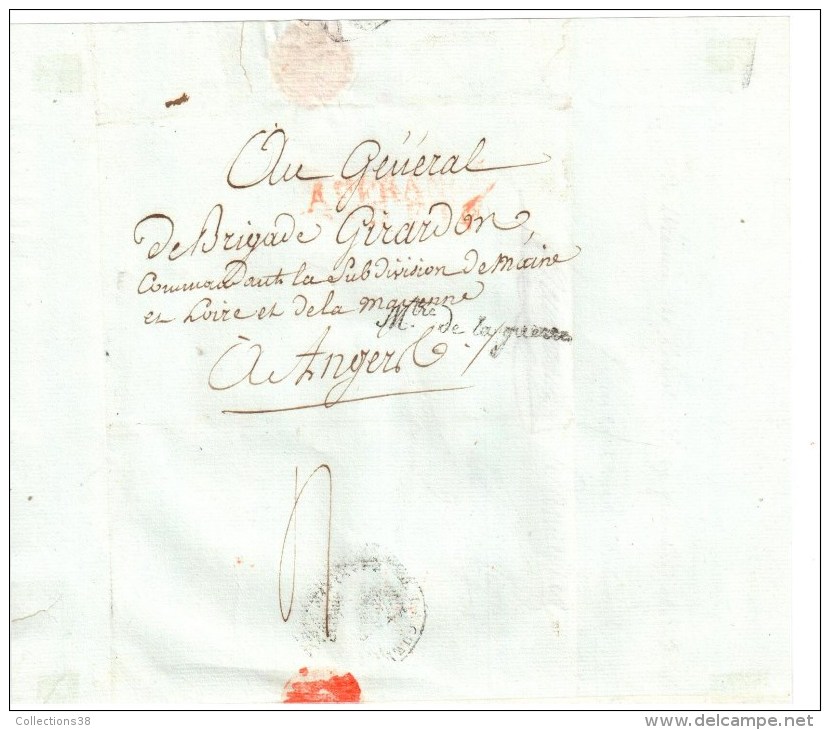 Au Général
AFFRAN
de Brigade Girardon,
Commandant la Subdivision de Maine
et Loire et de la mayenne
M.tre de la guerre
À Angers
Collections38
delcampe.net